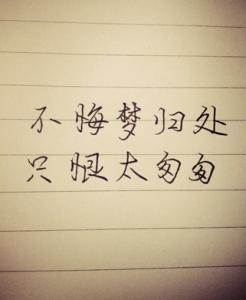 不悔梦归处
只恨太匆匆